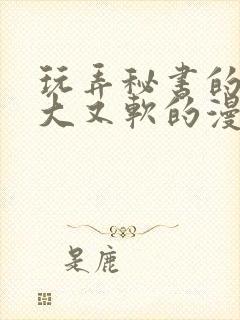 玩弄秘书的
大又软的漫
是鹿